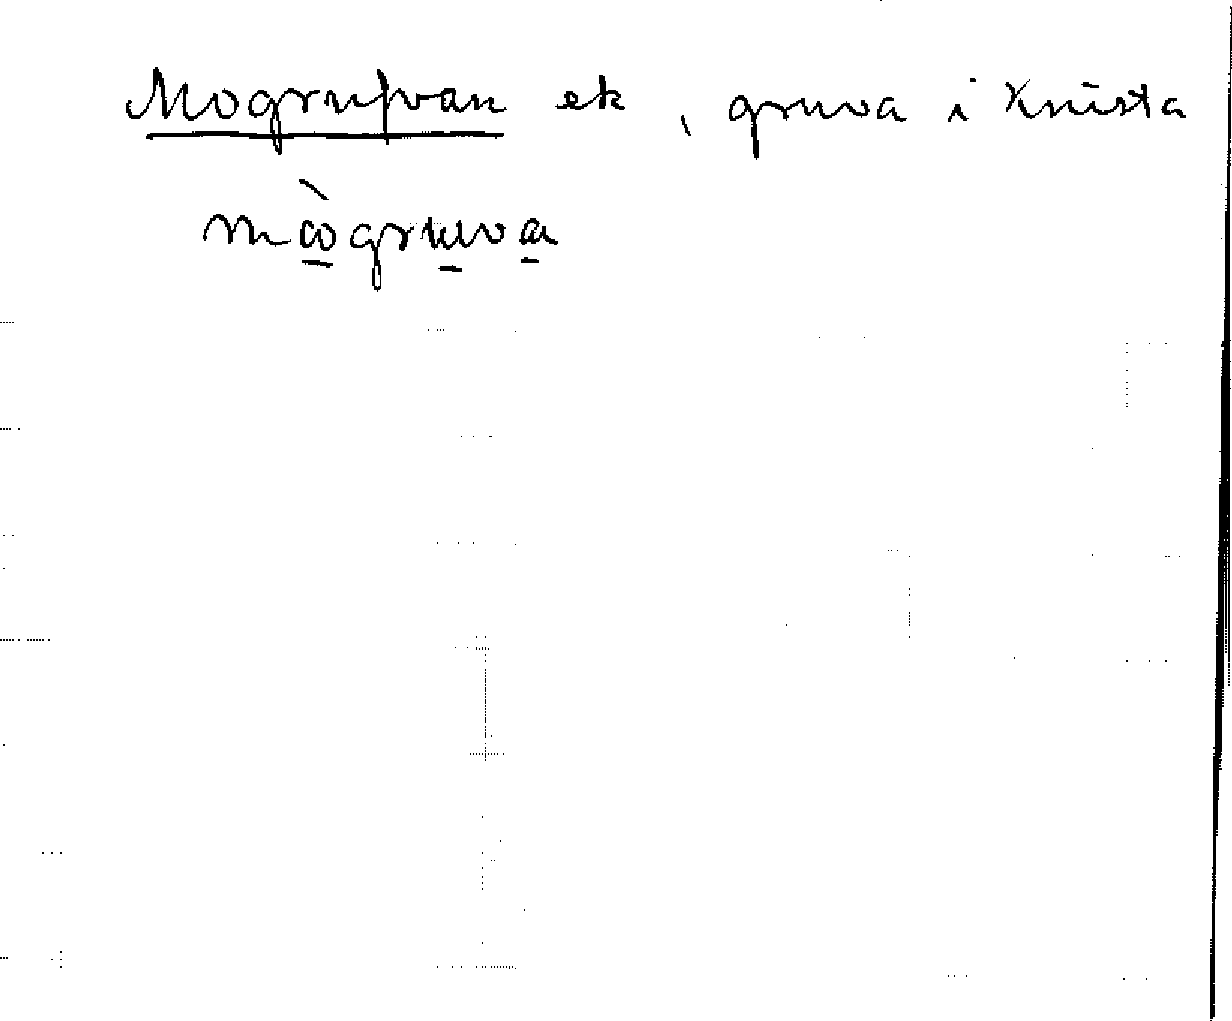 Mogrufvan ek, gruva i Knista
mògruva